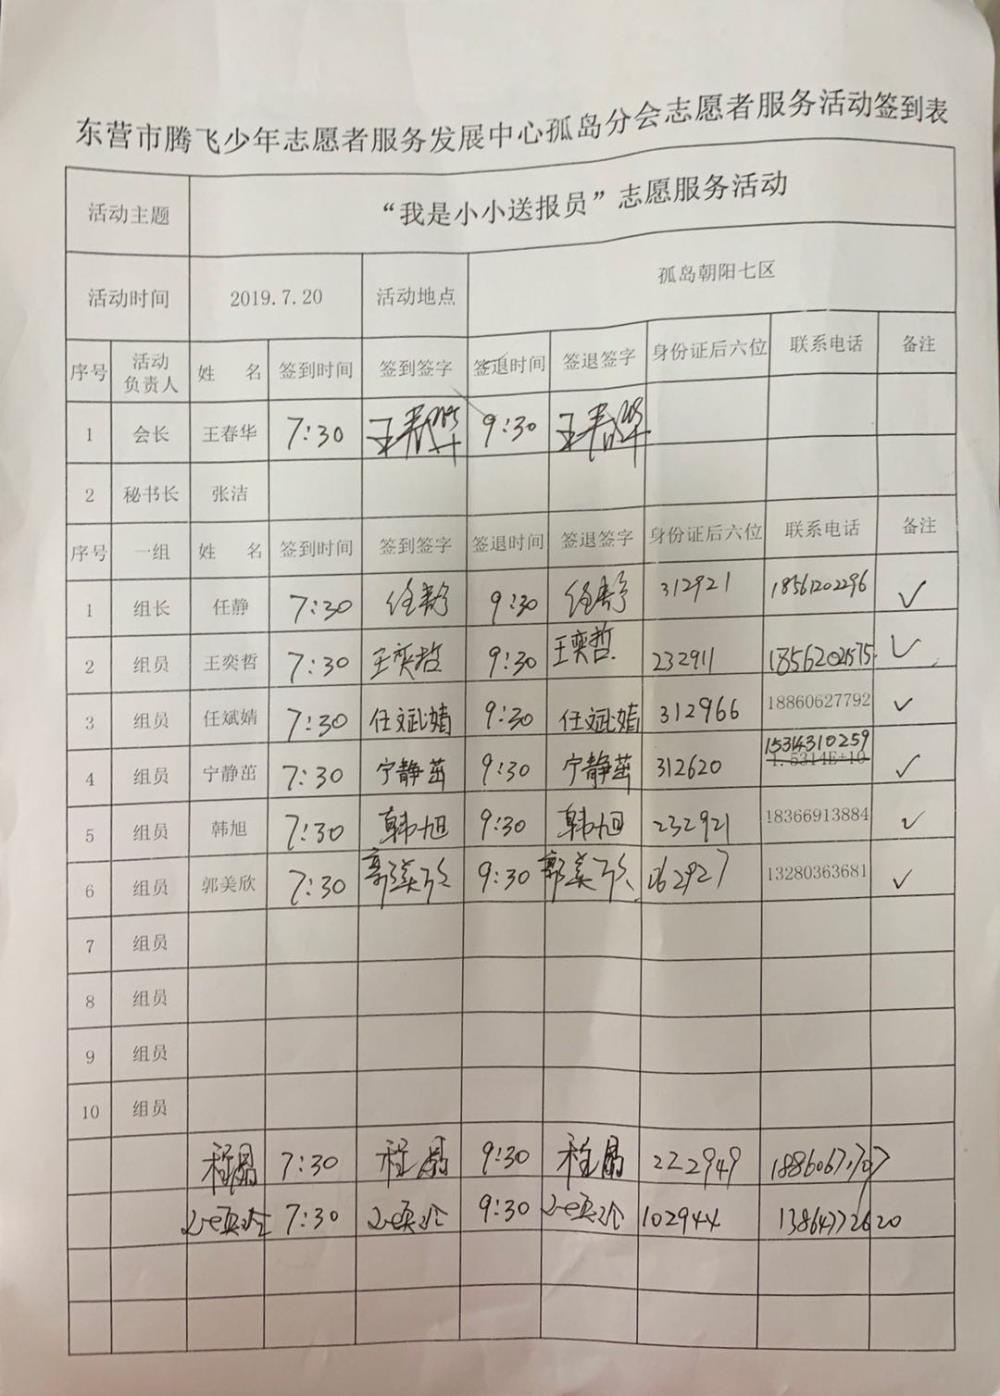 东营市腾飞少年志愿者服务发展中心孤岛分会志愿者服务活动签到表
活动主题 “我是小小送报员”志愿服务活动
活动时间 2019.7.20 活动地点 孤岛朝阳七区
序号 活动负责人 姓 名 签到时间 签到签字 签退时间 签退签字 身份证后六位 联系电话 备注
1 会长 王春华 7:30 王春华 9:30 王春华
2 秘书长 张洁
序号 一组 姓 名 签到时间 签到签字 签退时间 签退签字 身份证后六位 联系电话 备注
1 组长 任静 7:30 任静 9:30 任静 312921 18561202296 ✓
2 组员 王奕哲 7:30 王奕哲 9:30 王奕哲 232911 ✓
3 组员 任斌婧 7:30 任斌婧 9:30 任斌婧 312966 18860627792 ✓
4 组员 宁静茁 7:30 宁静茁 9:30 宁静茁 312620 15314310259 1.5314E+10 ✓
5 组员 韩旭 7:30 韩旭 9:30 韩旭 232921 18366913884 ✓
6 组员 郭美欣 7:30 郭美欣 9:30 郭美欣 162927 13280363681 ✓
7 组员
8 组员
9 组员
10 组员
程晶 7:30 程晶 9:30 程晶 222949
7:30 9:30 102944